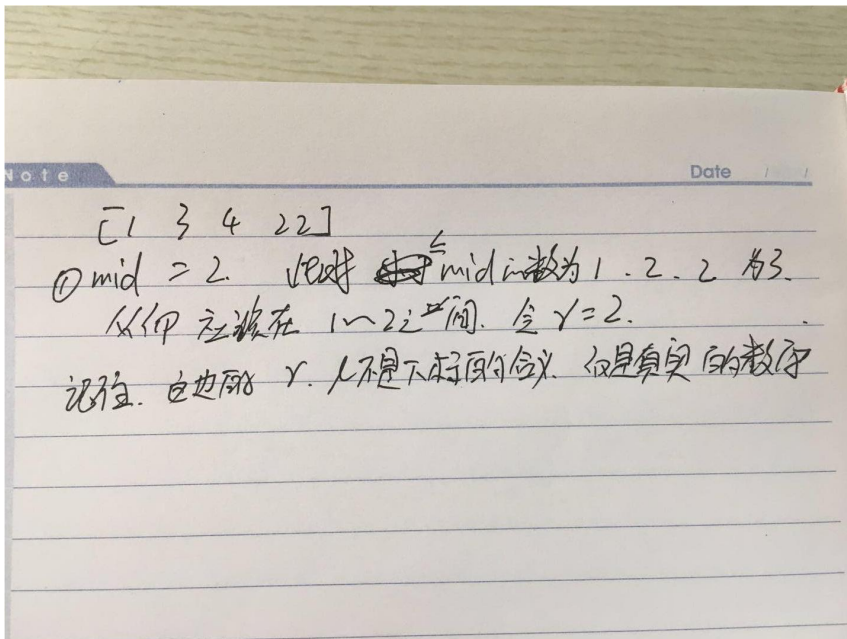 Note
Date / /
[1 3 4 22]
① mid = 2. 此时 ≤ mid的数为1.2.2 为3.
从而 应该在 1~2之间. 令 r=2.
记住. 这边的 r. l不是下标的含义. 仅是真实的数字